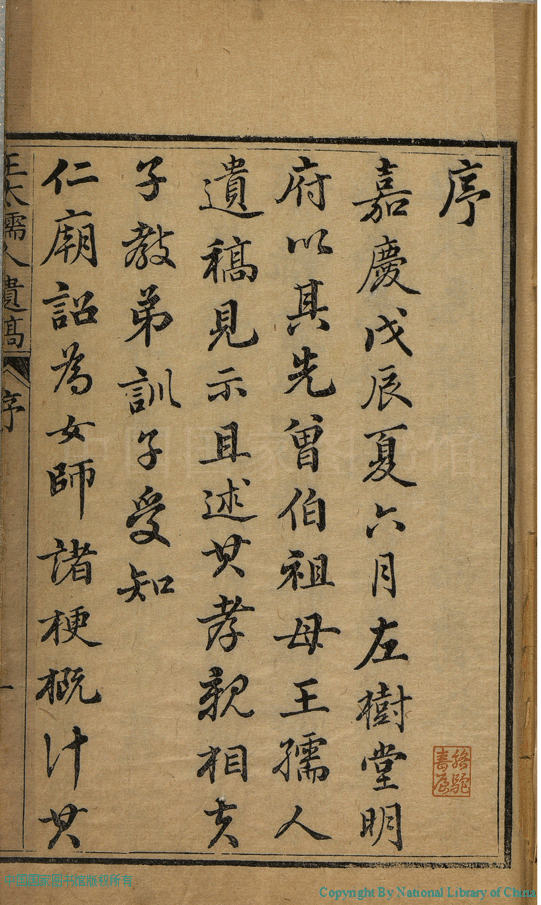 序
嘉慶戊辰夏六月左樹堂明
府以其先曾伯祖母王孺人
遺稿見示且述其孝親相夫
子教弟訓子受知
仁廟詔為女師諸梗概計其
王太孺人遺稿
序
一
中国国家图书馆
中国国家图书馆版权所有
Copyright By National Library of China